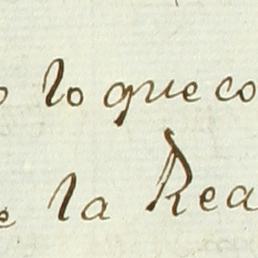 lo que co
e la Rea